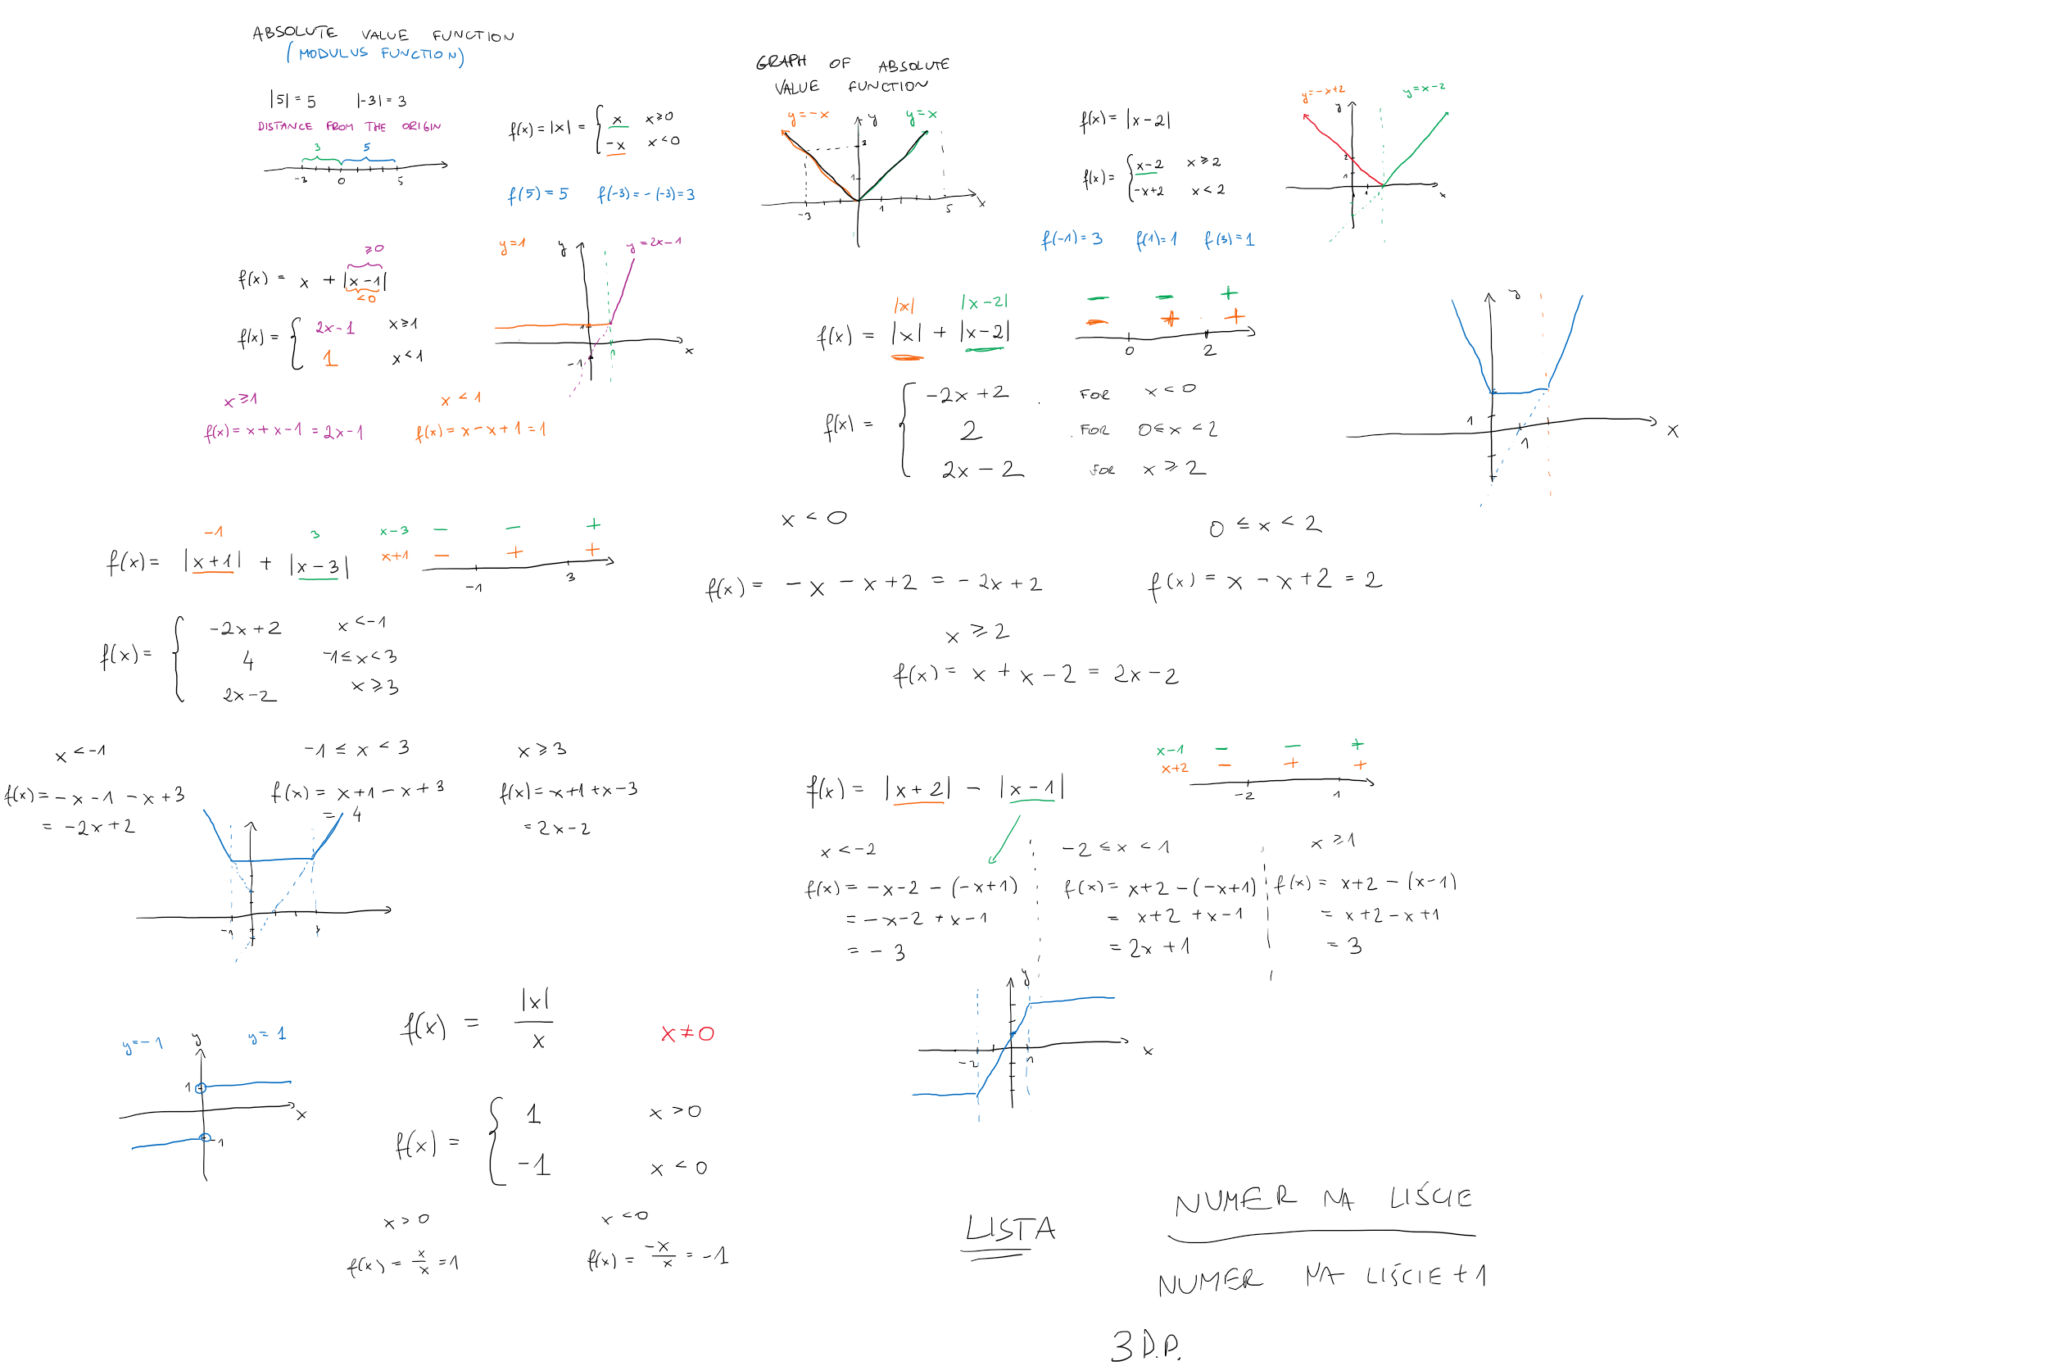 ABSOLUTE VALUE FUNCTION
(MODULUS FUNCTION)
|5| = 5   |-3| = 3
DISTANCE FROM THE ORIGIN
3   5
-3   0   5
f(x) = |x| = { x   x≥0
-x   x<0
f(5) = 5   f(-3) = -(-3) = 3
GRAPH OF ABSOLUTE
VALUE FUNCTION
y=-x   y   y=x
3
1
-3   1   5   x
f(x) = |x-2|
f(x) = { x-2   x≥2
-x+2   x<2
f(-1) = 3   f(1) = 1   f(3) = 1
y=-x+2   y   y=x-2
2
1
1   x
≥0
f(x) = x + |x-1|
<0
f(x) = { 2x-1   x≥1
1   x<1
x≥1
f(x) = x+x-1 = 2x-1
x<1
f(x) = x-x+1 = 1
y=1   y   y=2x-1
1
1   x
-1
|x|   |x-2|
f(x) = |x| + |x-2|
-   -   +
-   +   +
0   2
f(x) = { -2x+2   FOR   x<0
2   FOR   0≤x<2
2x-2   FOR   x≥2
y
1
1   x
x<0
f(x) = -x-x+2 = -2x+2
0≤x<2
f(x) = x-x+2 = 2
x≥2
f(x) = x+x-2 = 2x-2
-1   3
f(x) = |x+1| + |x-3|
x-3   -   -   +
x+1   -   +   +
-1   3
f(x) = { -2x+2   x<-1
4   -1≤x<3
2x-2   x≥3
x<-1
f(x) = -x-1-x+3
= -2x+2
-1≤x<3
f(x) = x+1-x+3
= 4
x≥3
f(x) = x+1+x-3
= 2x-2
-1
f(x) = |x+2| - |x-1|
x-1   -   -   +
x+2   -   +   +
-2   1
x<-2
f(x) = -x-2-(-x+1)
= -x-2+x-1
= -3
-2≤x<1
f(x) = x+2-(-x+1)
= x+2+x-1
= 2x+1
x≥1
f(x) = x+2-(x-1)
= x+2-x+1
= 3
y
-2   1   x
y=-1   y   y=1
1
x
-1
f(x) = |x|/x   x≠0
f(x) = { 1   x>0
-1   x<0
x>0
f(x) = x/x = 1
x<0
f(x) = -x/x = -1
LISTA
NUMER NA LIŚCIE
NUMER NA LIŚCIE+1
3 D.P.